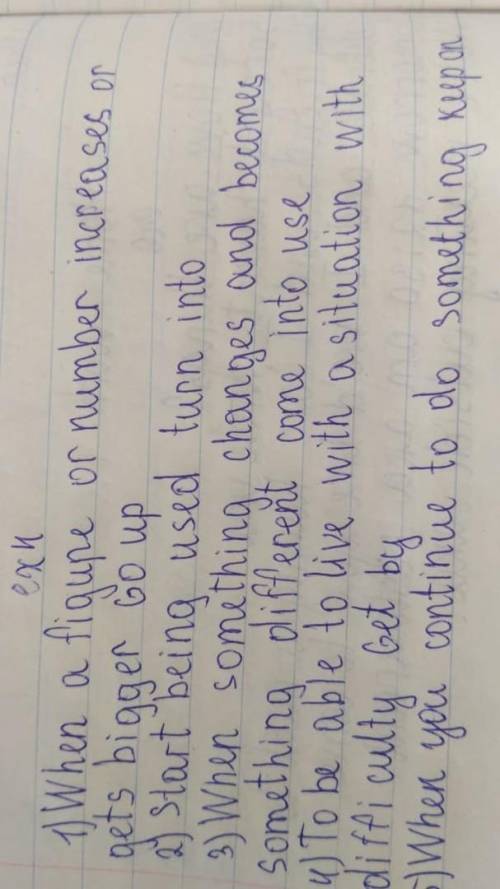 ex 4
1) When a figure or number increases or
gets bigger Go up
2) Start being used turn into
3) When something changes and becomes
something different come into use
4) To be able to live with a situation with
difficulty Get by
) When you continue to do something keep on